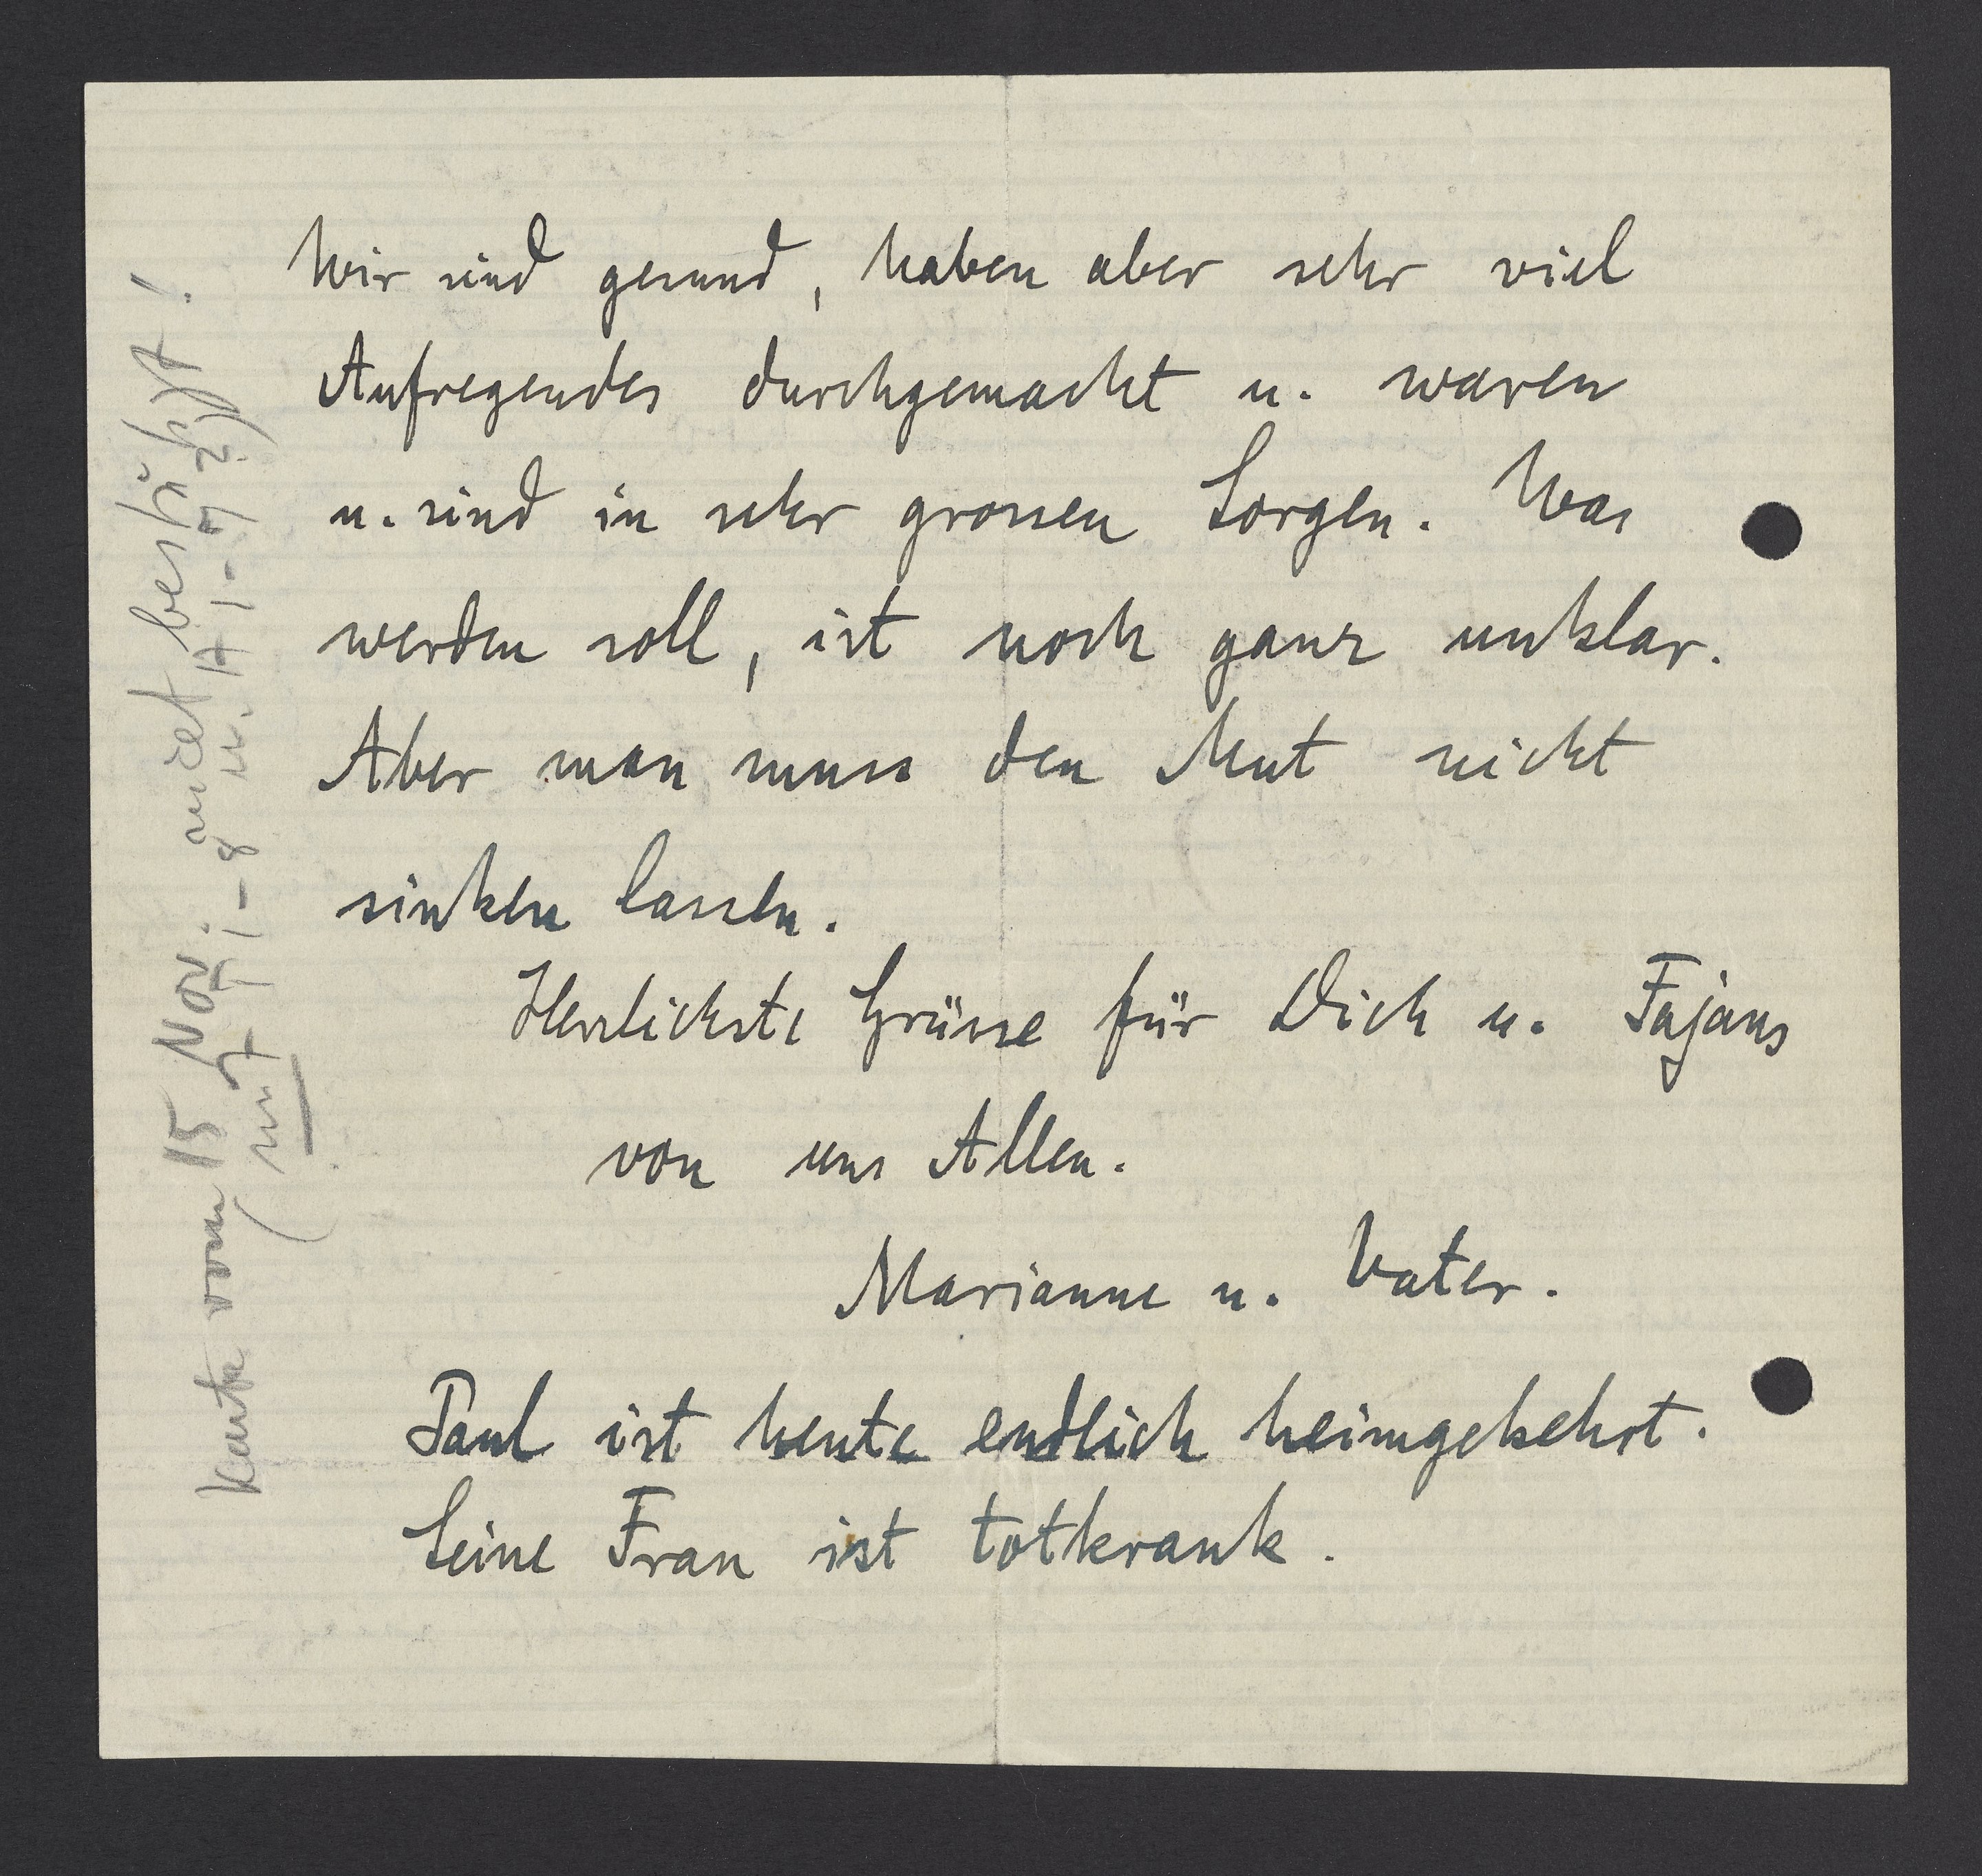 Wir sind gesund, haben aber sehr viel
Aufregendes durchgemacht u. waren
u. sind in sehr grossen Sorgen. Was
werden soll, ist noch ganz unklar.
Aber man muss den Mut nicht
sinken lassen.
Herzlichste Grüsse für Dich u. Fajans
von uns Allen.
Marianne u. Vater.
Paul ist heute endlich heimgekehrt.
Seine Frau ist totkrank.
Karte vom 15 Nov. bestätigt!